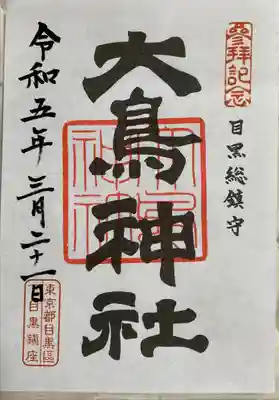 參拜記念
目黒総鎮守
大鳥神社
令和五年三月二十一日
東京都目黒區
目黒鎮座